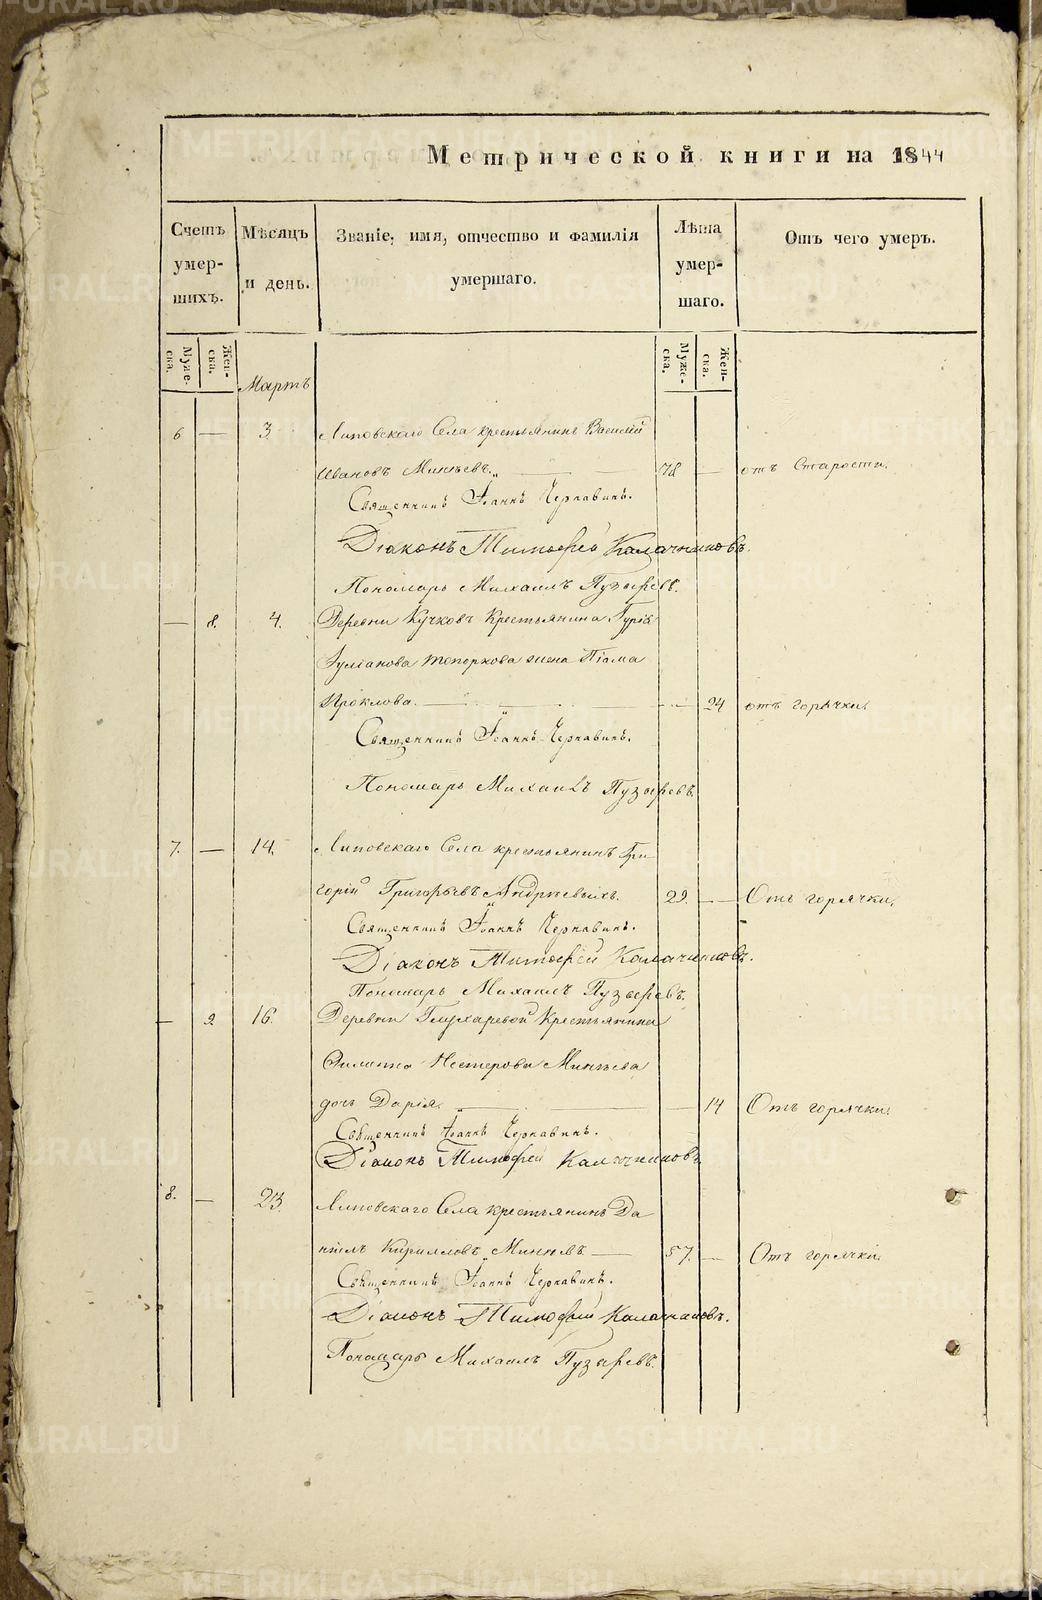 Метрической книги на 1844
Счетъ умер-шихъ.
Мѣсяцъ и день.
Званіе, имя, отчество и фамилія умершаго.
Лѣта умер-шаго.
Отъ чего умеръ.
Муже-ска.
Жен-ска.
Муже-ска.
Жен-ска.
Мартъ
6 — 3. Липовскаго Села крестьянинъ Василій
Ивановъ Минѣевъ. 78 — отъ Старости.
Священникъ Іоаннъ Чернавинъ.
Діаконъ Тимофей Калачниковъ.
Пономарь Михаилъ Пузыревъ.
— 8. 4. Деревни Кучковъ Крестьянина Гурія
Іуліанова Топоркова жена
Проклова. — — 24 отъ горячки.
Священникъ Іоаннъ Чернавинъ.
Пономарь Михаилъ Пузыревъ.
7. — 14. Липовскаго Села крестьянинъ Гри
горій Григорьевъ Андрѣевыхъ. 29. — Отъ горячки.
Священникъ Іоаннъ Чернавинъ.
Діаконъ Тимофей Калачниковъ.
Пономарь Михаилъ Пузыревъ.
— 9. 16. Деревни Глухаревой Крестьянина
Филиппа Нестерова Минѣева
дочь Дарія. — — 14 Отъ горячки.
Священникъ Іоаннъ Чернавинъ.
Діаконъ Тимофей Калачниковъ
8. — 23. Липовскаго Села крестьянинъ Да
ніилъ Кирилловъ Минѣевъ — 57. — Отъ горячки.
Священникъ Іоаннъ Чернавинъ.
Діаконъ Тимофей Калачниковъ.
Пономарь Михаилъ Пузыревъ.
METRIKI.GASO-URAL.RU